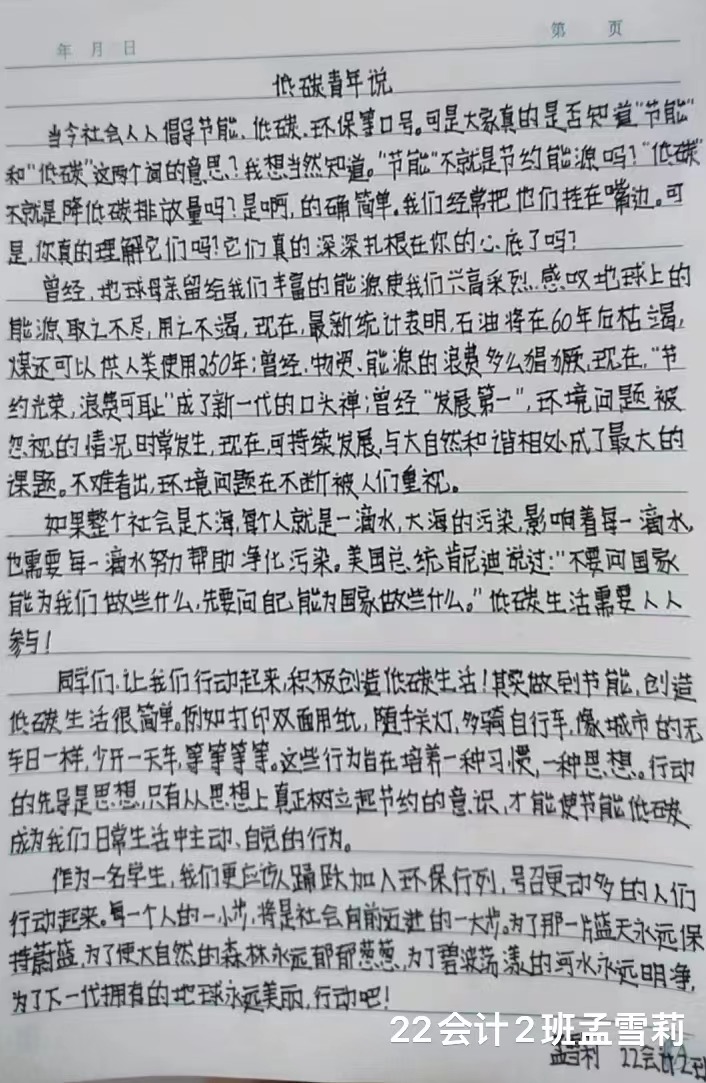 年 月 日
第 页
低碳青年说
当今社会人人倡导节能、低碳、环保等口号。可是大家真的是否知道"节能"
和"低碳"这两个词的意思？我想当然知道。"节能"不就是节约能源吗？"低碳"
不就是降低碳排放量吗？是啊，的确简单。我们经常把他们挂在嘴边。可
是，你真的理解它们吗？它们真的深深扎根在你的心底了吗？
曾经，地球母亲留给我们丰富的能源使我们兴高采烈，感叹地球上的
能源取之不尽，用之不竭，现在，最新统计表明，石油将在60年后枯竭，
煤还可以供人类使用250年；曾经，物资、能源的浪费多么猖獗，现在，"节
约光荣，浪费可耻"成了新一代的口头禅；曾经"发展第一"，环境问题被
忽视的情况时常发生，现在，可持续发展，与大自然和谐相处成了最大的
课题。不难看出，环境问题在不断被人们重视。
如果整个社会是大海，每个人就是一滴水，大海的污染，影响着每一滴水，
也需要每一滴水努力帮助净化污染。美国总统肯尼迪说过："不要问国家
能为我们做些什么，先要问自己能为国家做些什么。"低碳生活需要人人
参与！
同学们，让我们行动起来，积极创造低碳生活！其实做到节能，创造
低碳生活很简单。例如打印双面用纸，随手关灯，多骑自行车，像城市的无
车日一样，少开一天车，等等等等。这些行为旨在培养一种习惯，一种思想。行动
的先导是思想，只有从思想上真正树立起节约的意识，才能使节能低碳
成为我们日常生活中主动、自觉的行为。
作为一名学生，我们更应该踊跃加入环保行列，号召更动多的人们
行动起来。每一个人的一小步，将是社会向前迈进的一大步。为了那一片蓝天永远保
持蔚蓝，为了使大自然的森林永远郁郁葱葱，为了碧波荡漾的河水永远明净，
为了下一代拥有的地球永远美丽，行动吧！
22会计2班孟雪莉
孟雪莉 22会计2班